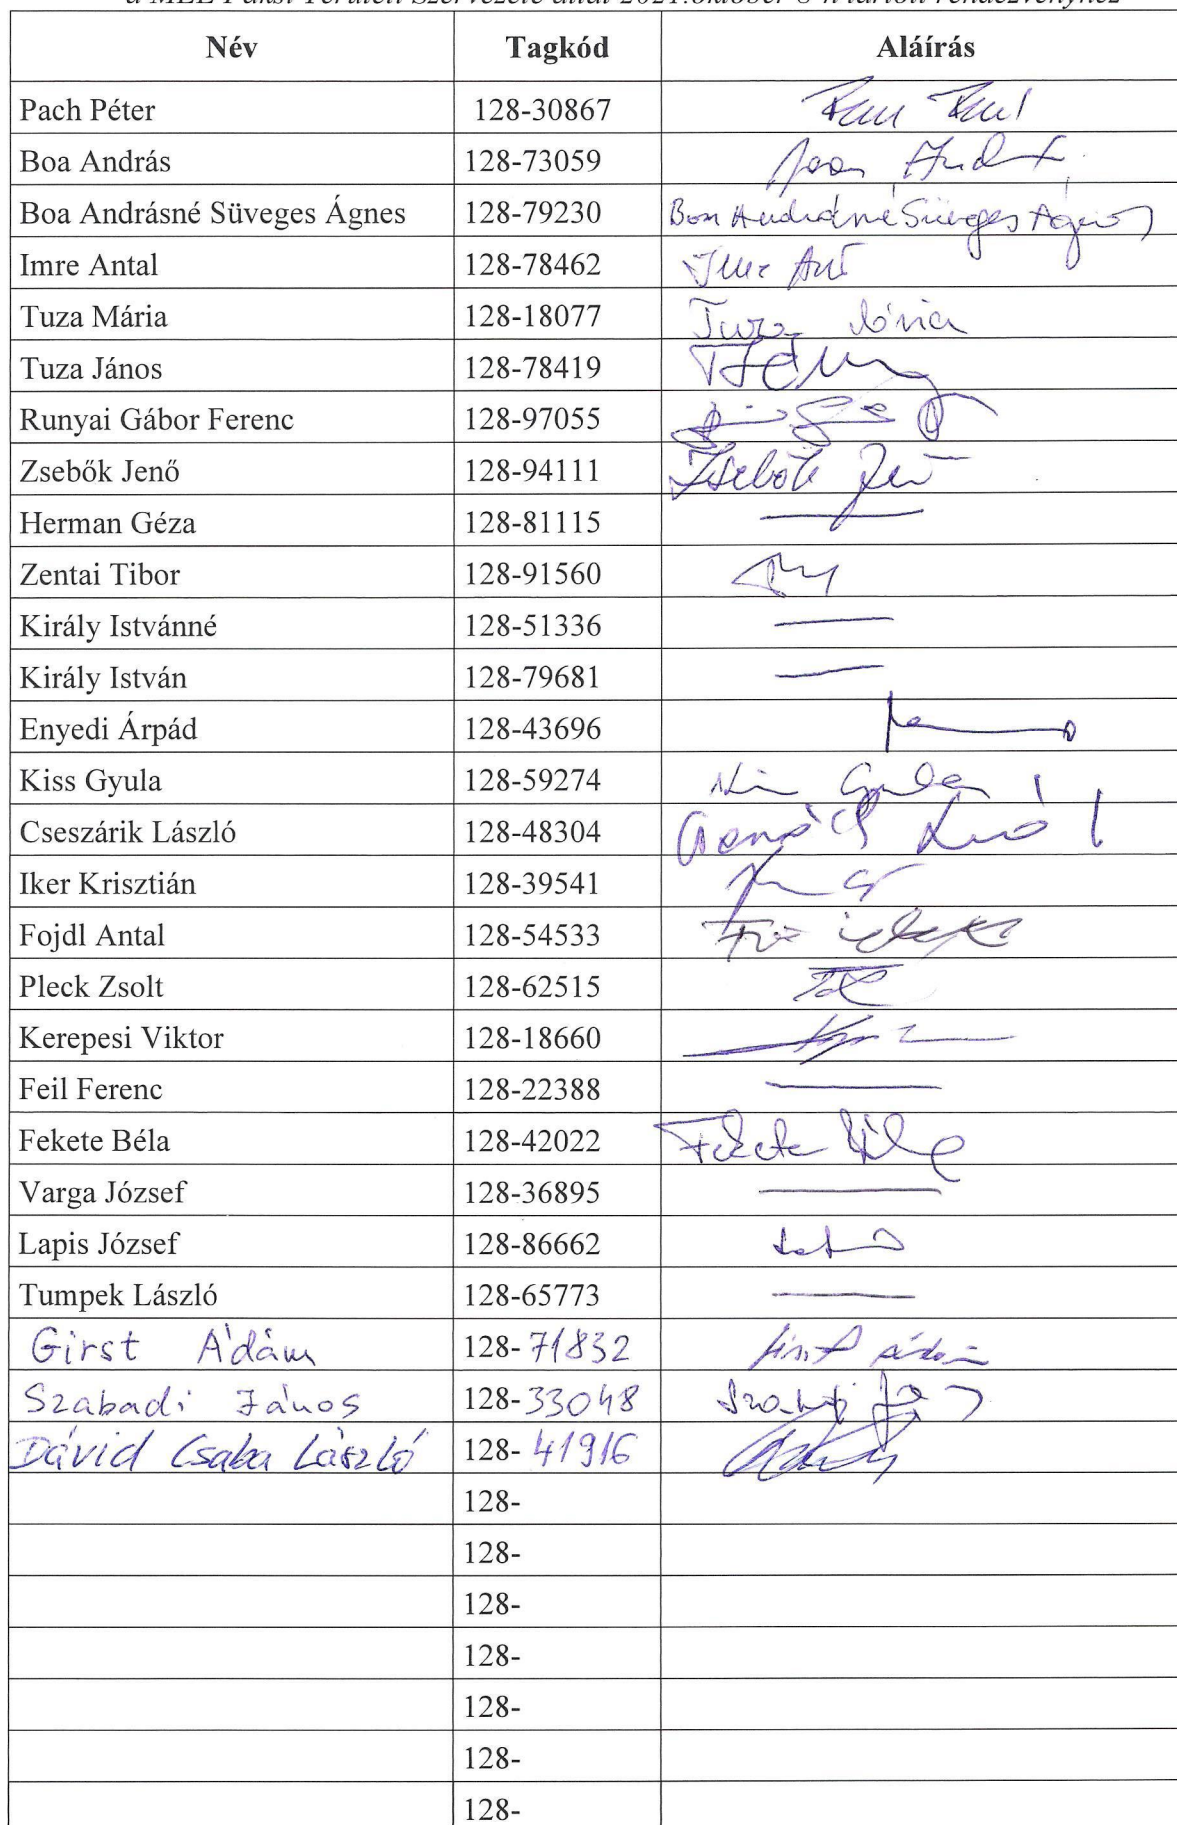 a MEE Paksi Területi Szervezete által 2021.október 8-n tartott rendezvényhez
Név Tagkód Aláírás
Pach Péter 128-30867
Boa András 128-73059
Boa Andrásné Süveges Ágnes 128-79230 Boa Andrásné Süveges Ágnes
Imre Antal 128-78462
Tuza Mária 128-18077 Tuza Mária
Tuza János 128-78419
Runyai Gábor Ferenc 128-97055
Zsebők Jenő 128-94111 Zsebők Jenő
Herman Géza 128-81115
Zentai Tibor 128-91560
Király Istvánné 128-51336
Király István 128-79681
Enyedi Árpád 128-43696
Kiss Gyula 128-59274 Kiss Gyula
Cseszárik László 128-48304
Iker Krisztián 128-39541
Fojdl Antal 128-54533
Pleck Zsolt 128-62515
Kerepesi Viktor 128-18660
Feil Ferenc 128-22388
Fekete Béla 128-42022 Fekete Béla
Varga József 128-36895
Lapis József 128-86662
Tumpek László 128-65773
Girst Ádám 128-71832 Girst Ádám
Szabadi János 128-33048
Dávid Csaba László 128-41916
128-
128-
128-
128-
128-
128-
128-